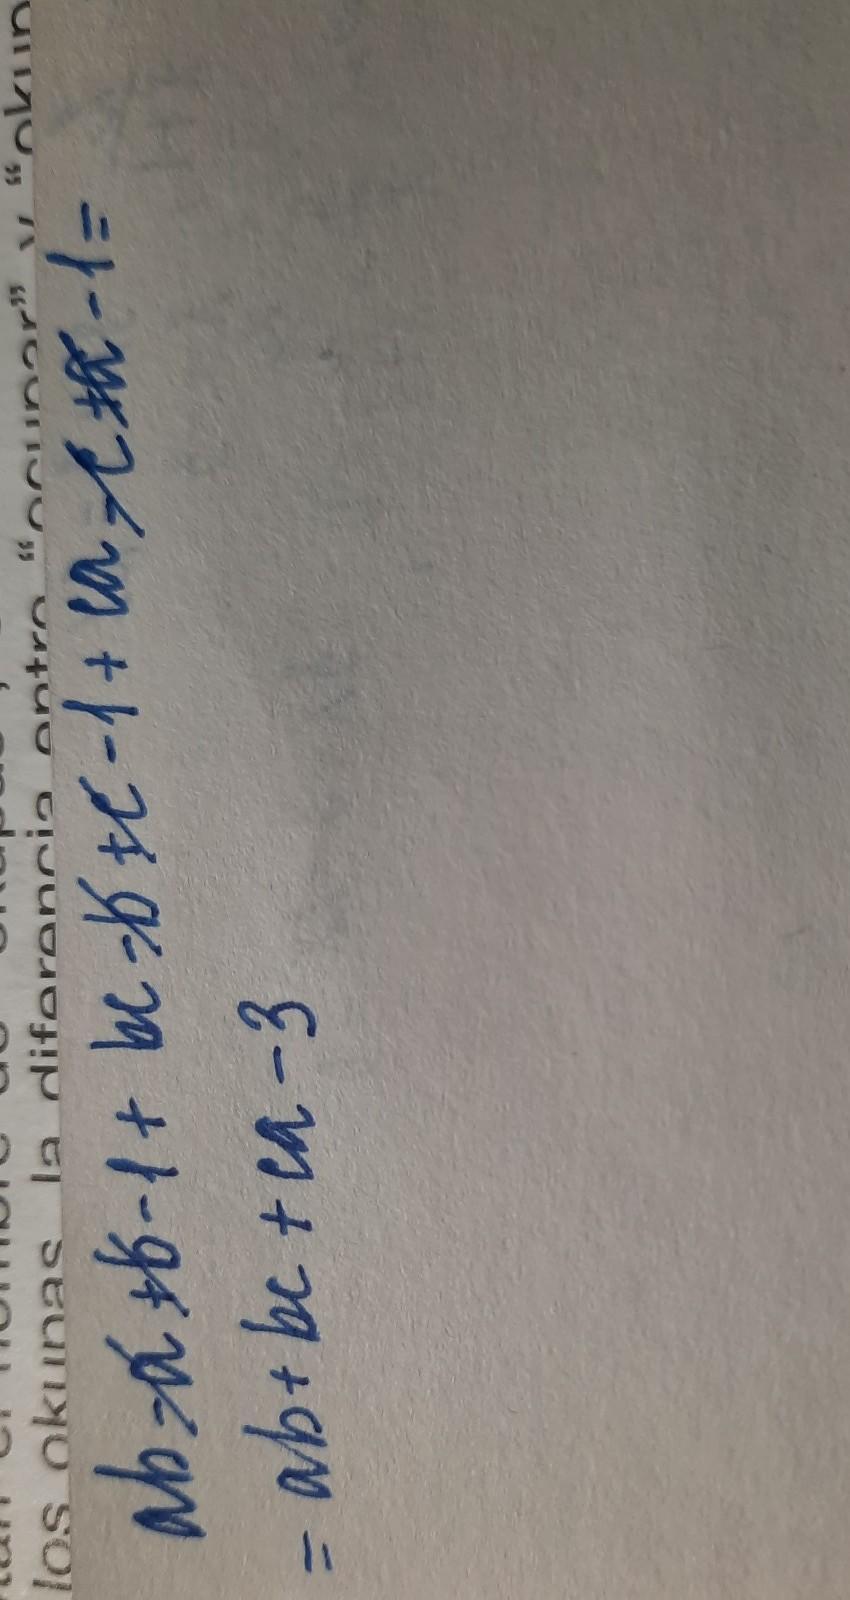 los okupas la diferencia entre “ocupar” y “okup
ab - a + b - 1 + bc - b + c - 1 + ca - c + a - 1 =
= ab + bc + ca - 3